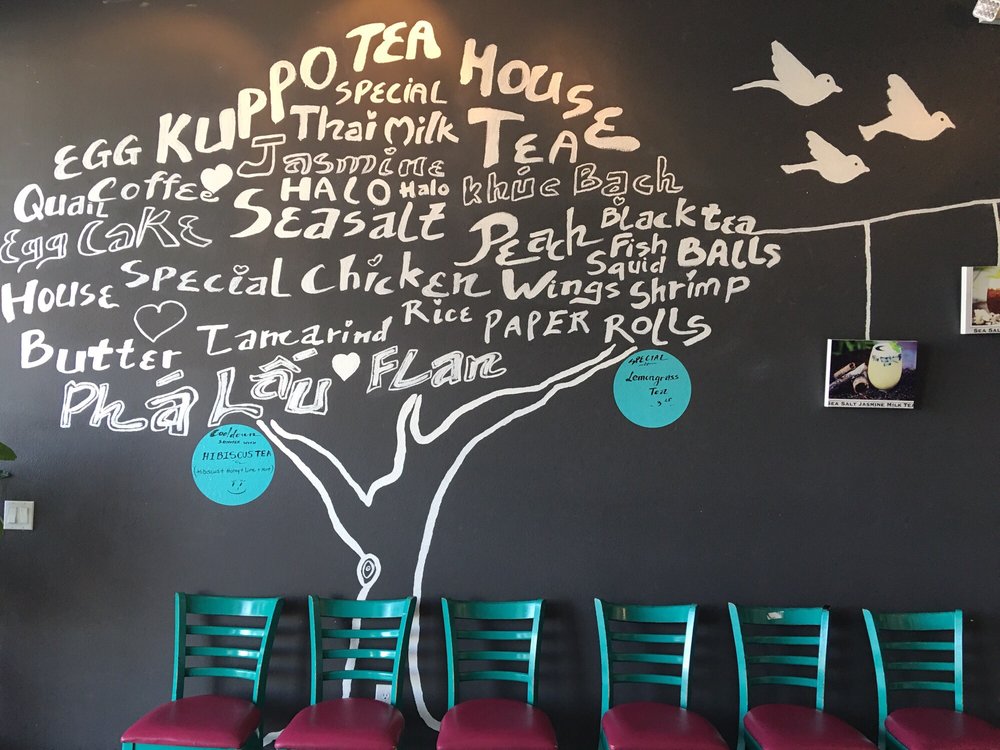 KUPPO TEA HOUSE
SPECIAL
EGG
Thai Milk
TEA
Jasmine
Coffee
HALO Halo
khúc Bạch
Quail
Seasalt
Black tea
Egg CaKE
Peach
Fish BALLS
Squid
House
Special Chicken Wings
Shrimp
Rice
PAPER ROLLS
Butter
Tamarind
Phá Lấu
FLan
SPECIAL
Lemongrass
Tea
Cooldown
SUMMER WITH
HIBISCUS TEA
SEA SALT JASMINE MILK TEA
SEA SAL